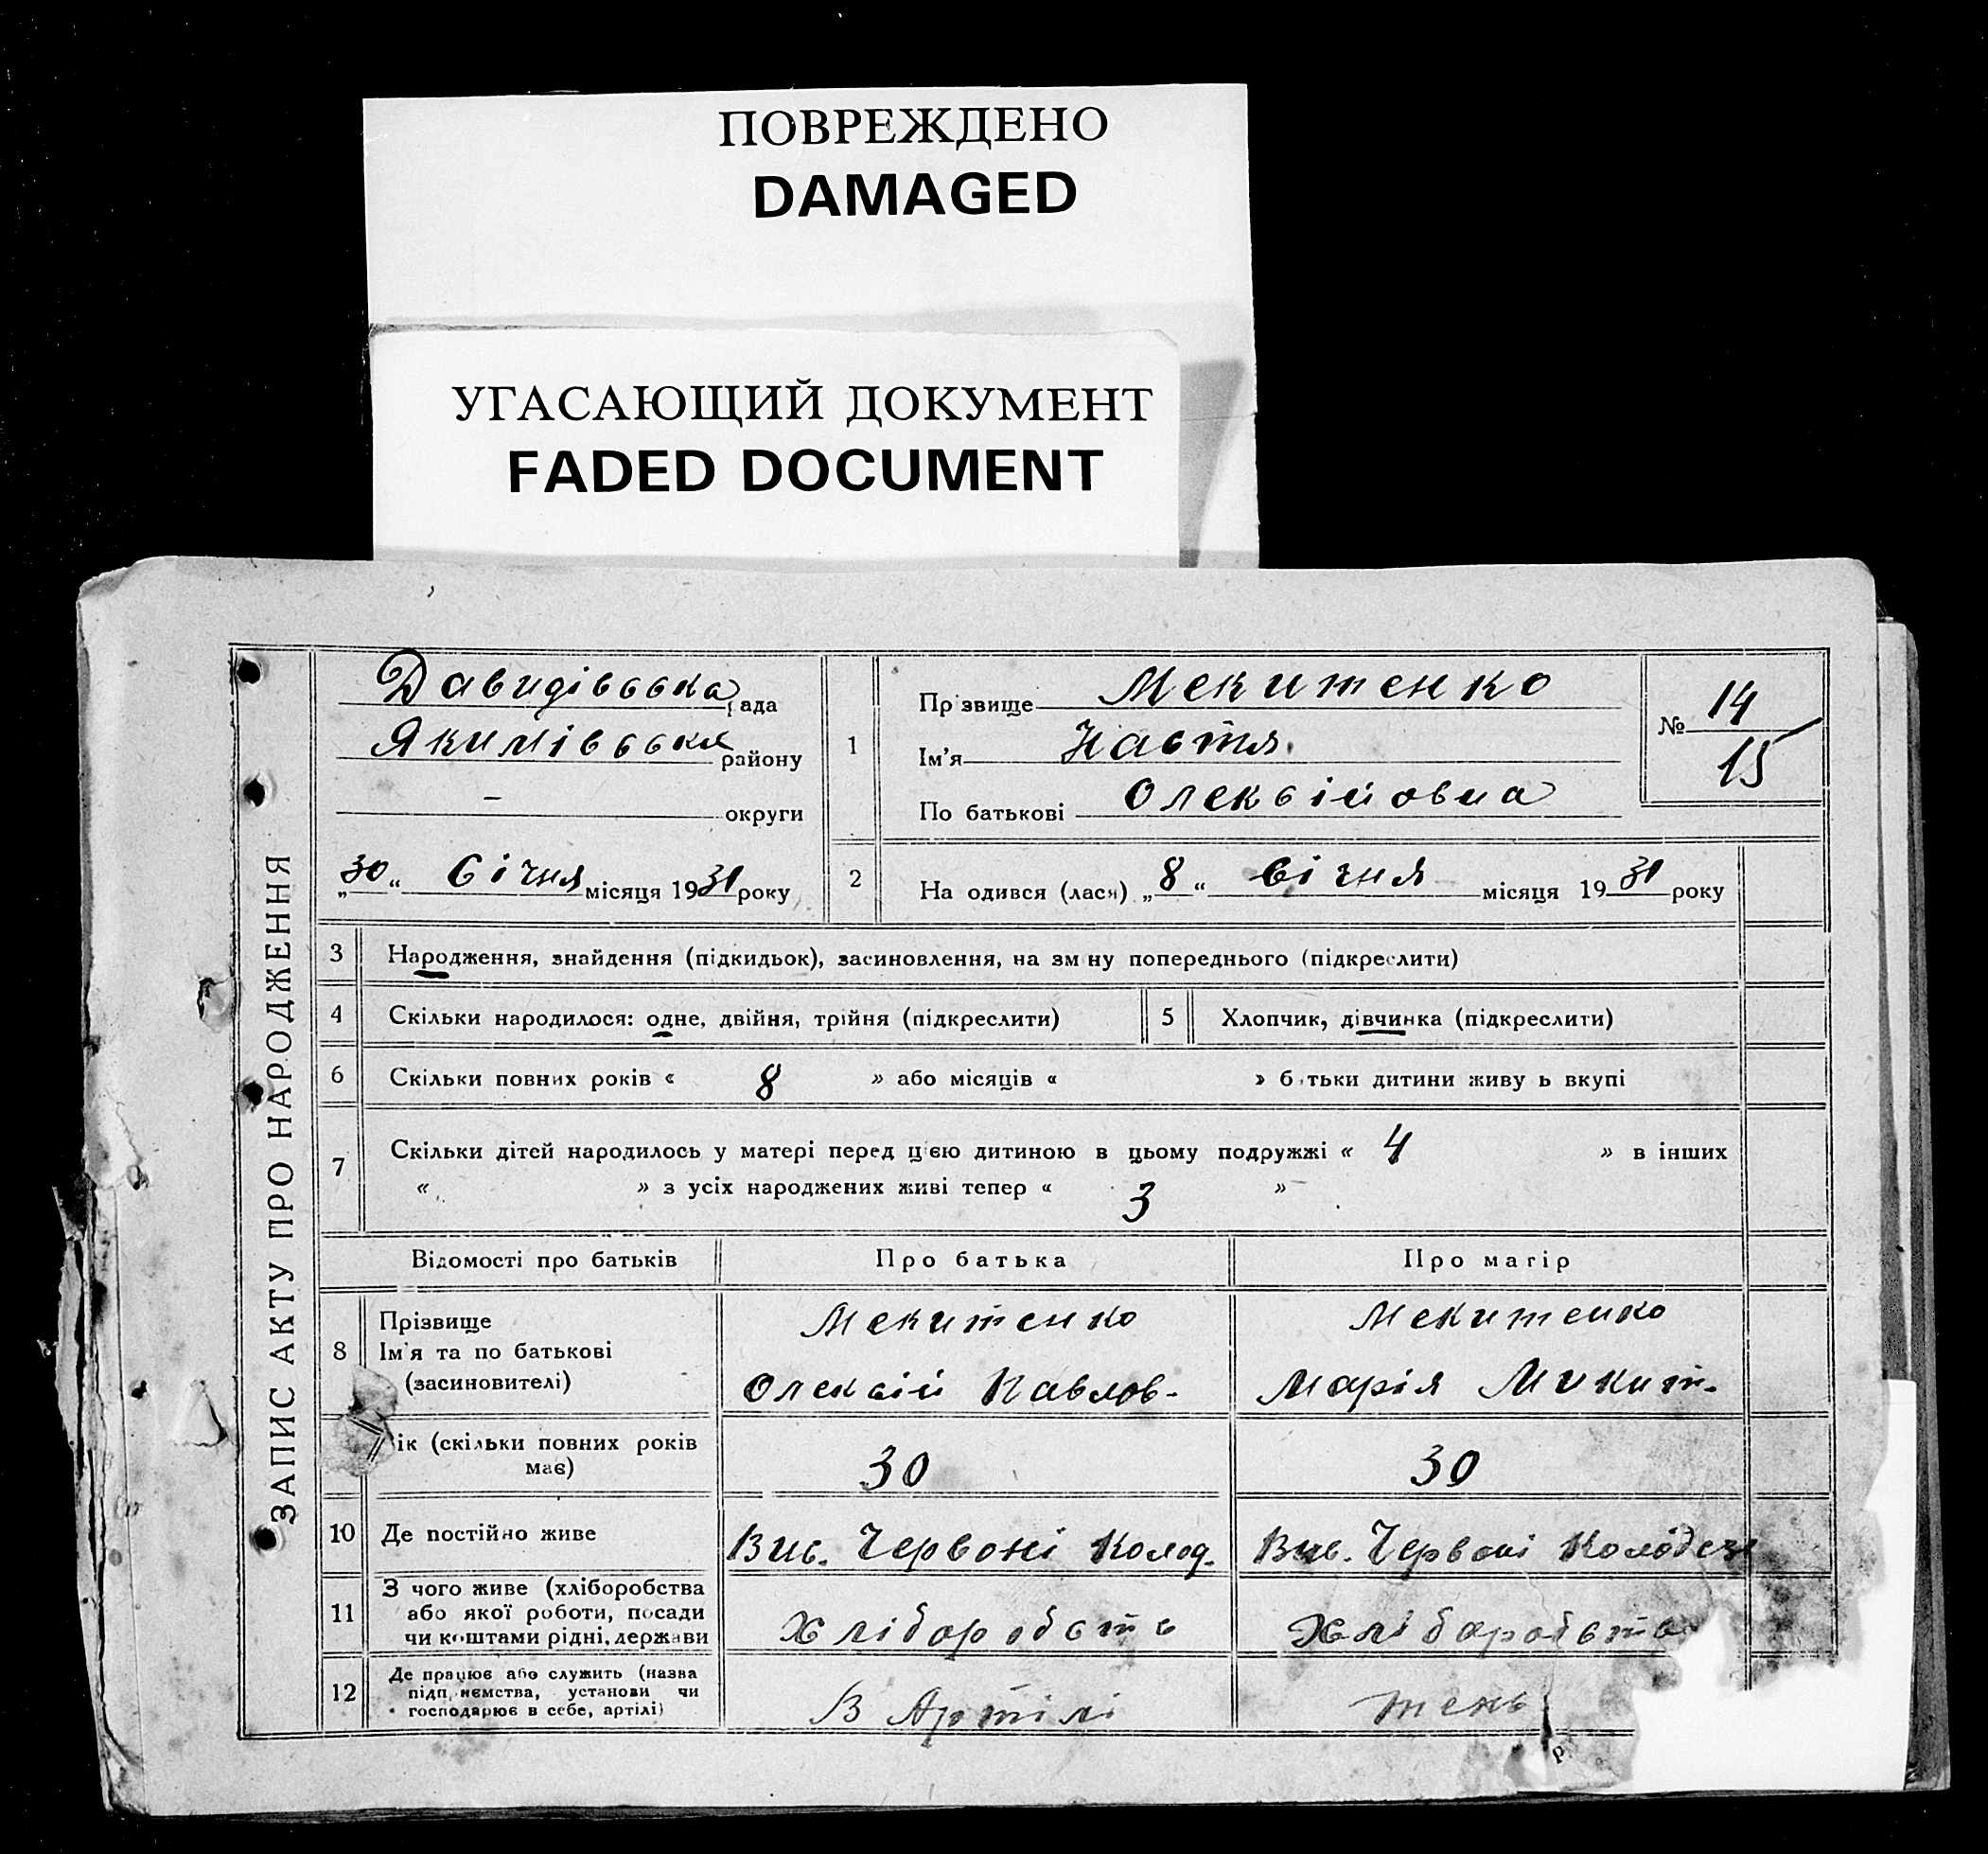 ПОВРЕЖДЕНО
DAMAGED
УГАСАЮЩИЙ ДОКУМЕНТ
FADED DOCUMENT
ЗАПИС АКТУ ПРО НАРОДЖЕННЯ
Давидівська рада
Якимівська району
– округи
„30“ Січня місяця 1931 року
1
Прізвище Мекитенко
Ім'я Настя
По батькові Олексійовна
№ 14
15
2 На одився (лася) „8“ Січня місяця 1931 року
3 Народження, знайдення (підкидьок), засиновлення, на зм ну попереднього (підкреслити)
4 Скільки народилося: одне, двійня, трійня (підкреслити) 5 Хлопчик, дівчинка (підкреслити)
6 Скільки повних років « 8 » або місяців « » б тьки дитини живу ь вкупі
7 Скільки дітей народилось у матері перед цією дитиною в цьому подружжі « 4 » в інших
« » з усіх народжених живі тепер « 3 »
Відомості про батьків Про батька Про матір
8 Прізвище Мекитенко Мекитенко
Ім'я та по батькові
(засиновителі) Олексій Павлов- Марія Микит-
ік (скільки повних років
має) 30 30
10 Де постійно живе Вис. Червоні Колод- Вис. Червоні Колодезі
11 З чого живе (хліборобства
або якої роботи, посади
чи коштами рідні, держави Хліборобств Хліборобств
12 Де працює або служить (назва
підп иємства, установи чи
господарює в себе, артілі) В Артілі